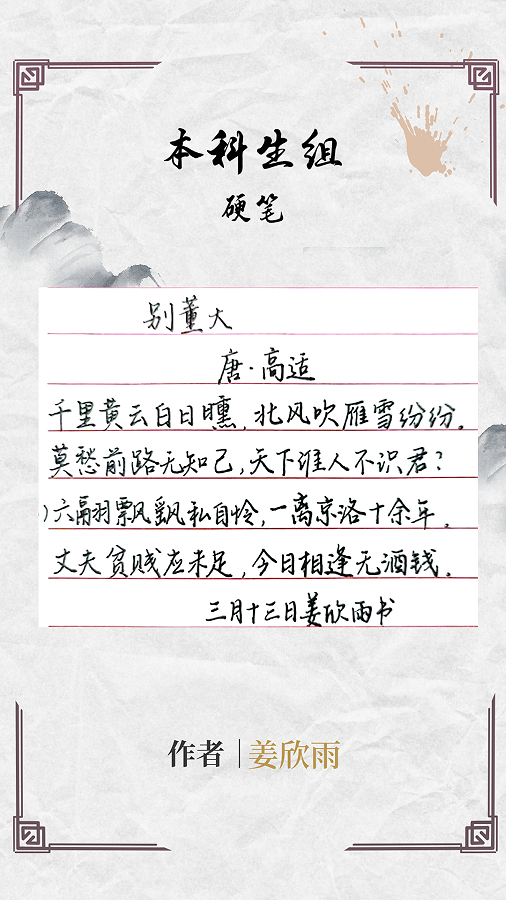 本科生组
硬笔
别董大
唐·高适
千里黄云白日曛,北风吹雁雪纷纷。
莫愁前路无知己,天下谁人不识君?
六翮飘飖私自怜,一离京洛十余年。
丈夫贫贱应未足,今日相逢无酒钱。
三月十三日姜欣雨书
作者|姜欣雨